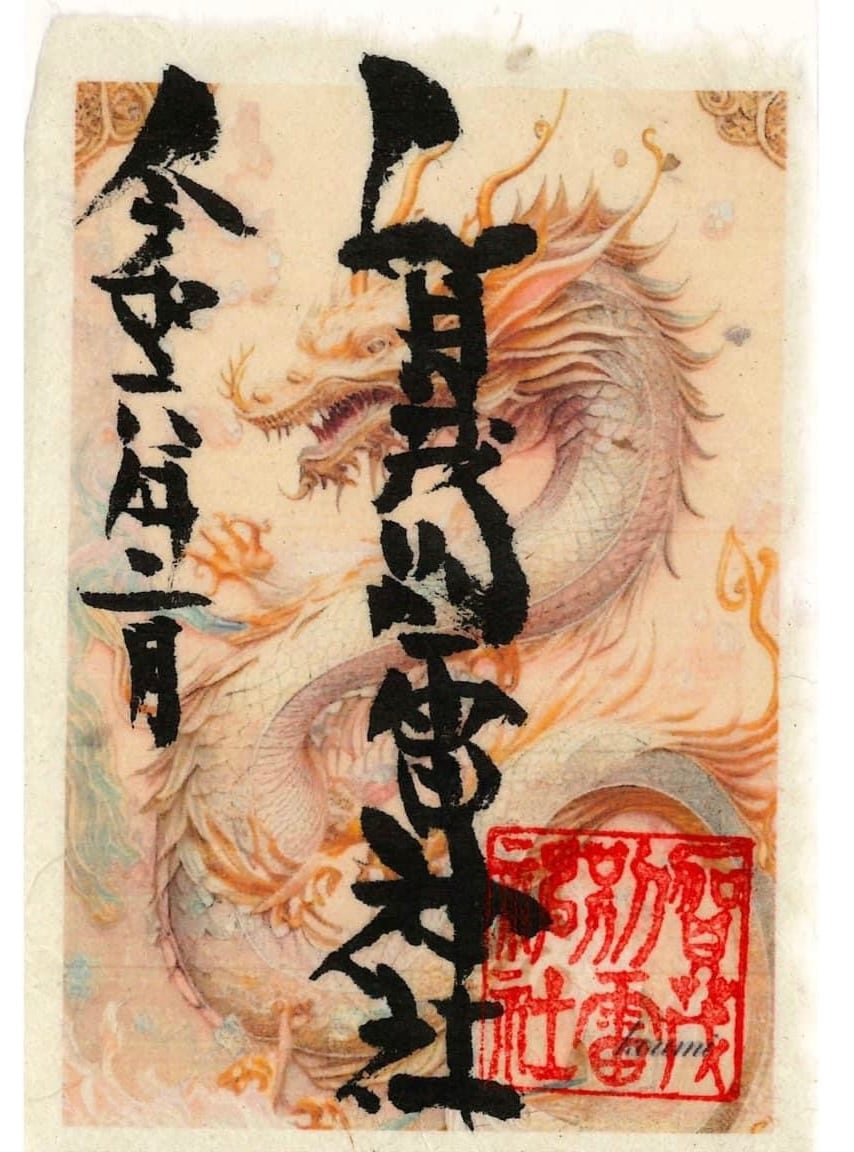 賀茂別雷神社
令和六年二月
賀茂
別雷
神社
koumi